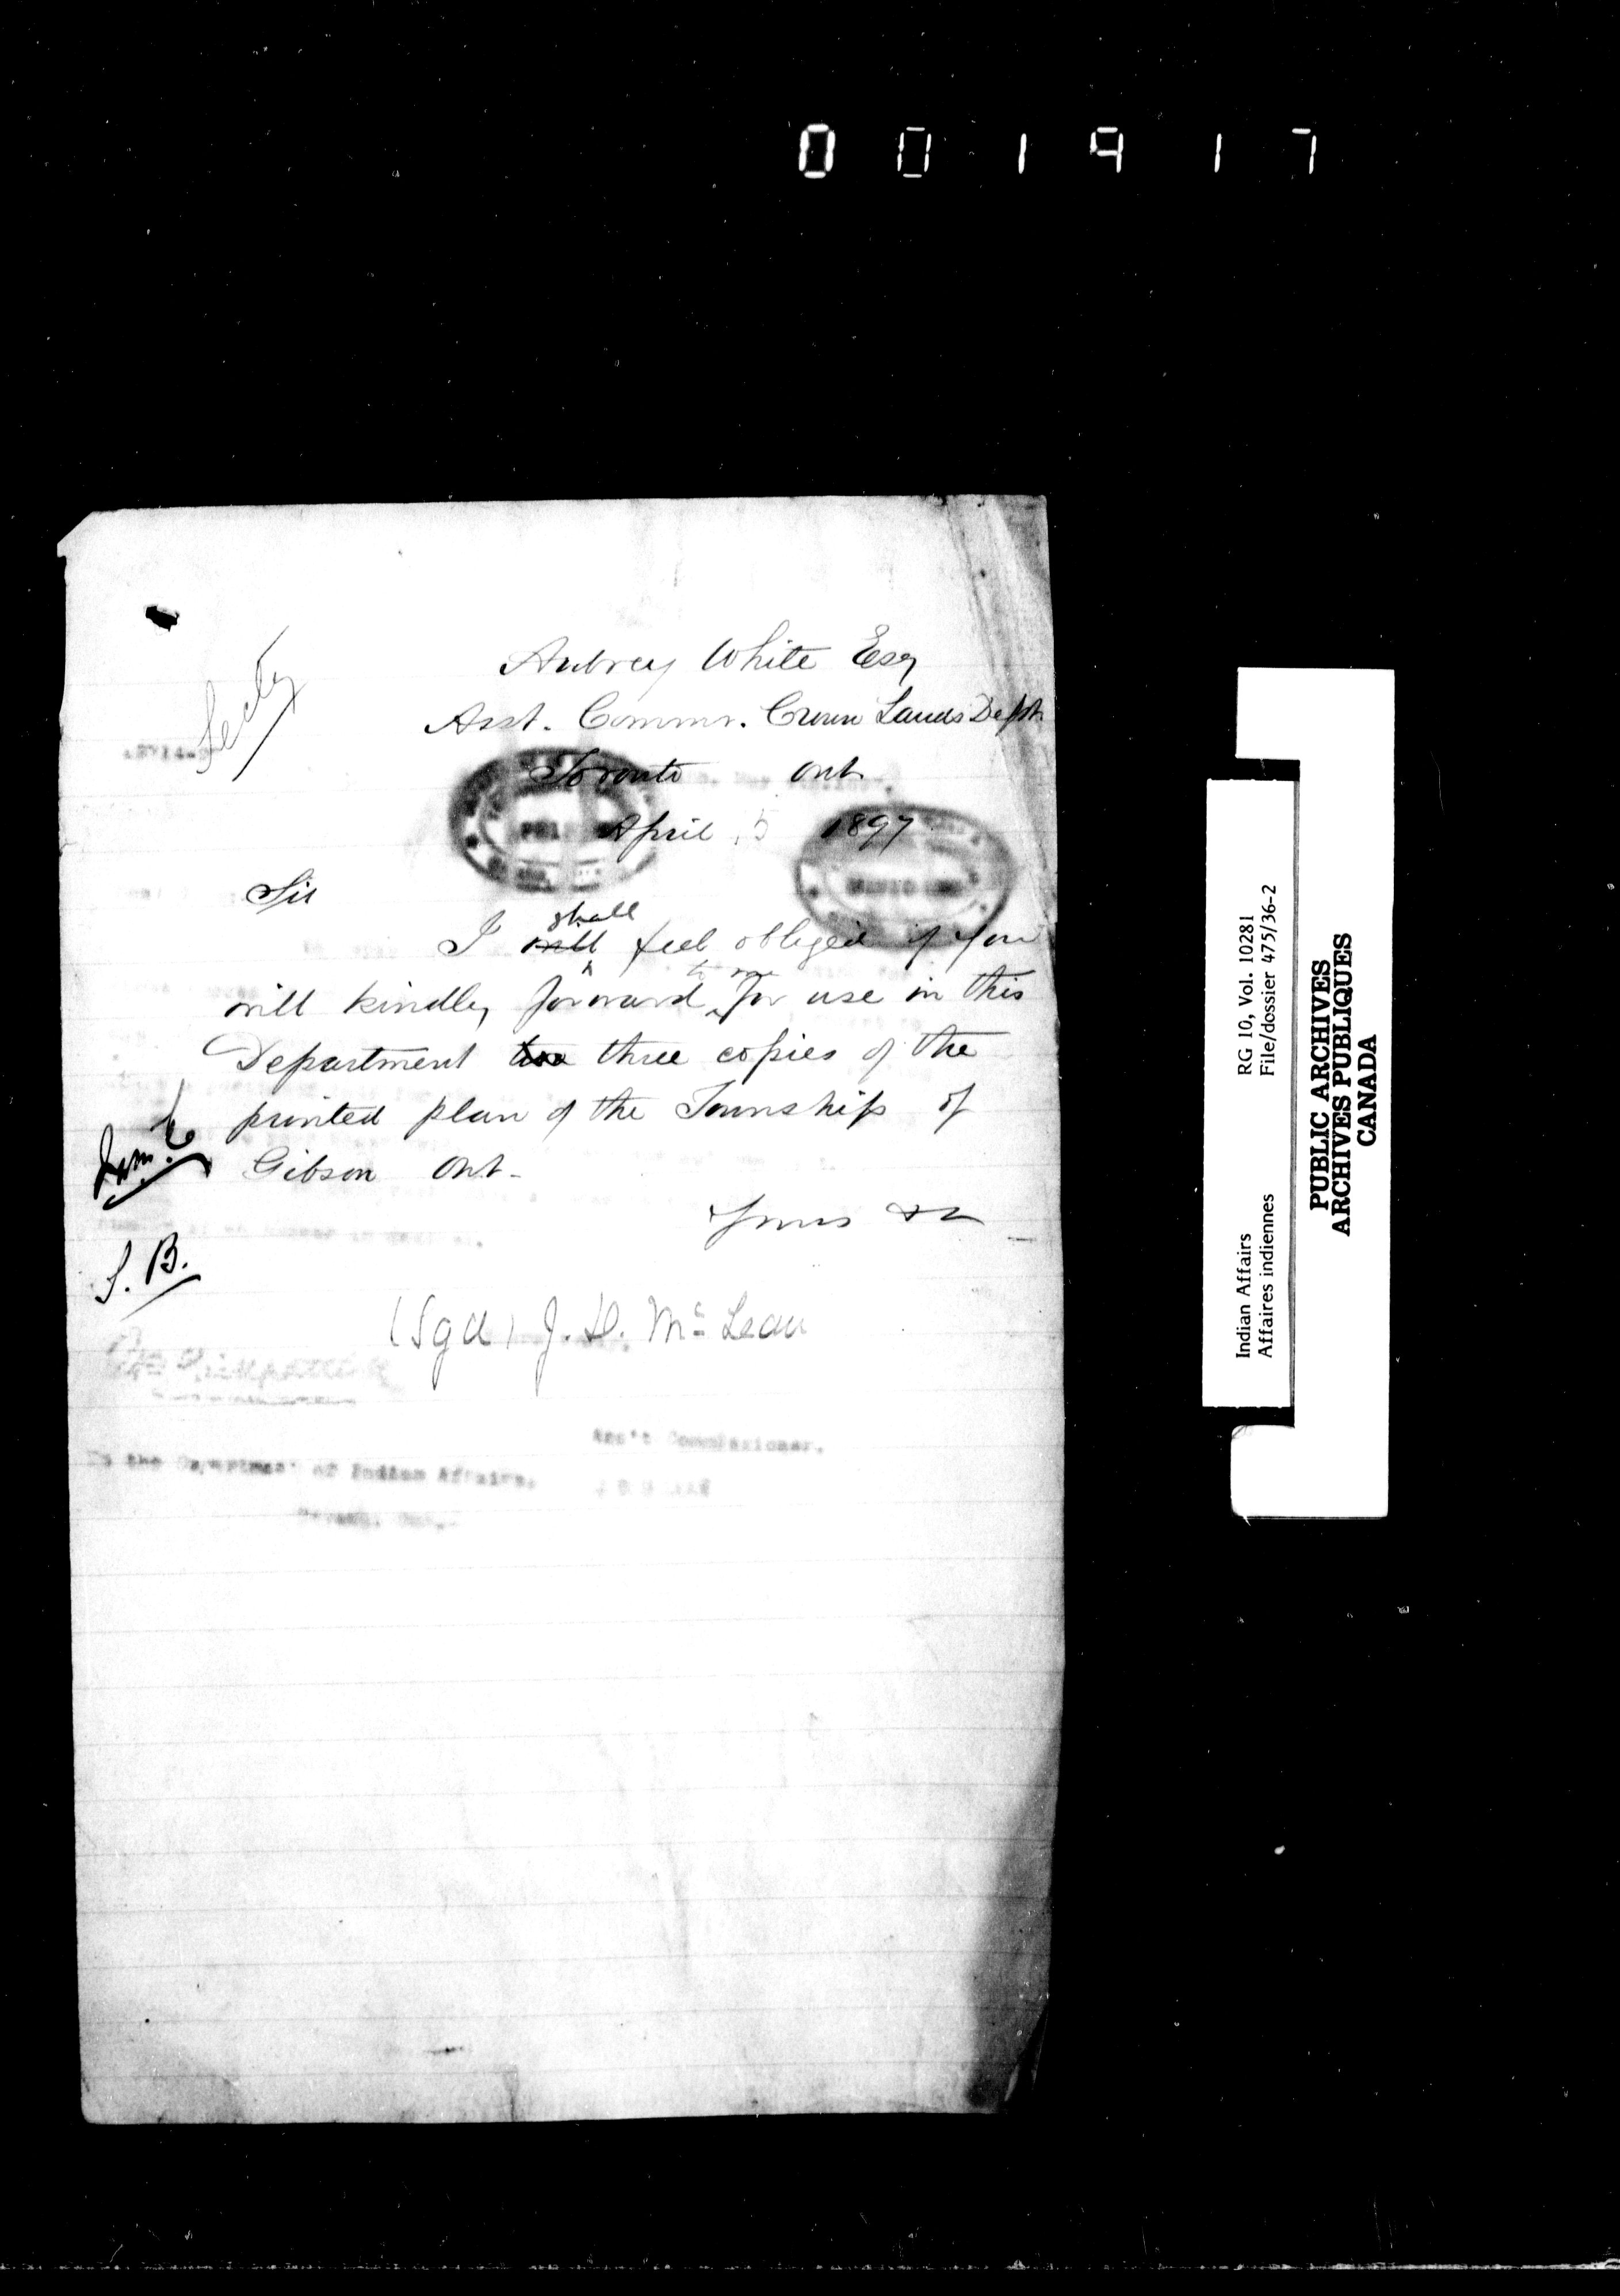 001917
Secty
Aubrey White Esq
Asst. Commr. Crown Lands Dept.
Toronto Ont.
April 5 1897
Sir
shall
I will feel obliged if you
to me
will kindly forward for use in this
Department two three copies of the
printed plan of the Township of
Gibson Ont-
Yours &c
S. B.
(Sgd) J. D. Mc Lean
Ass't Commissioner.
To the Department of Indian Affairs,
Ottawa, Ont.
RG 10, Vol. 10281
File/dossier 475/36-2
Indian Affairs
Affaires indiennes
PUBLIC ARCHIVES
ARCHIVES PUBLIQUES
CANADA